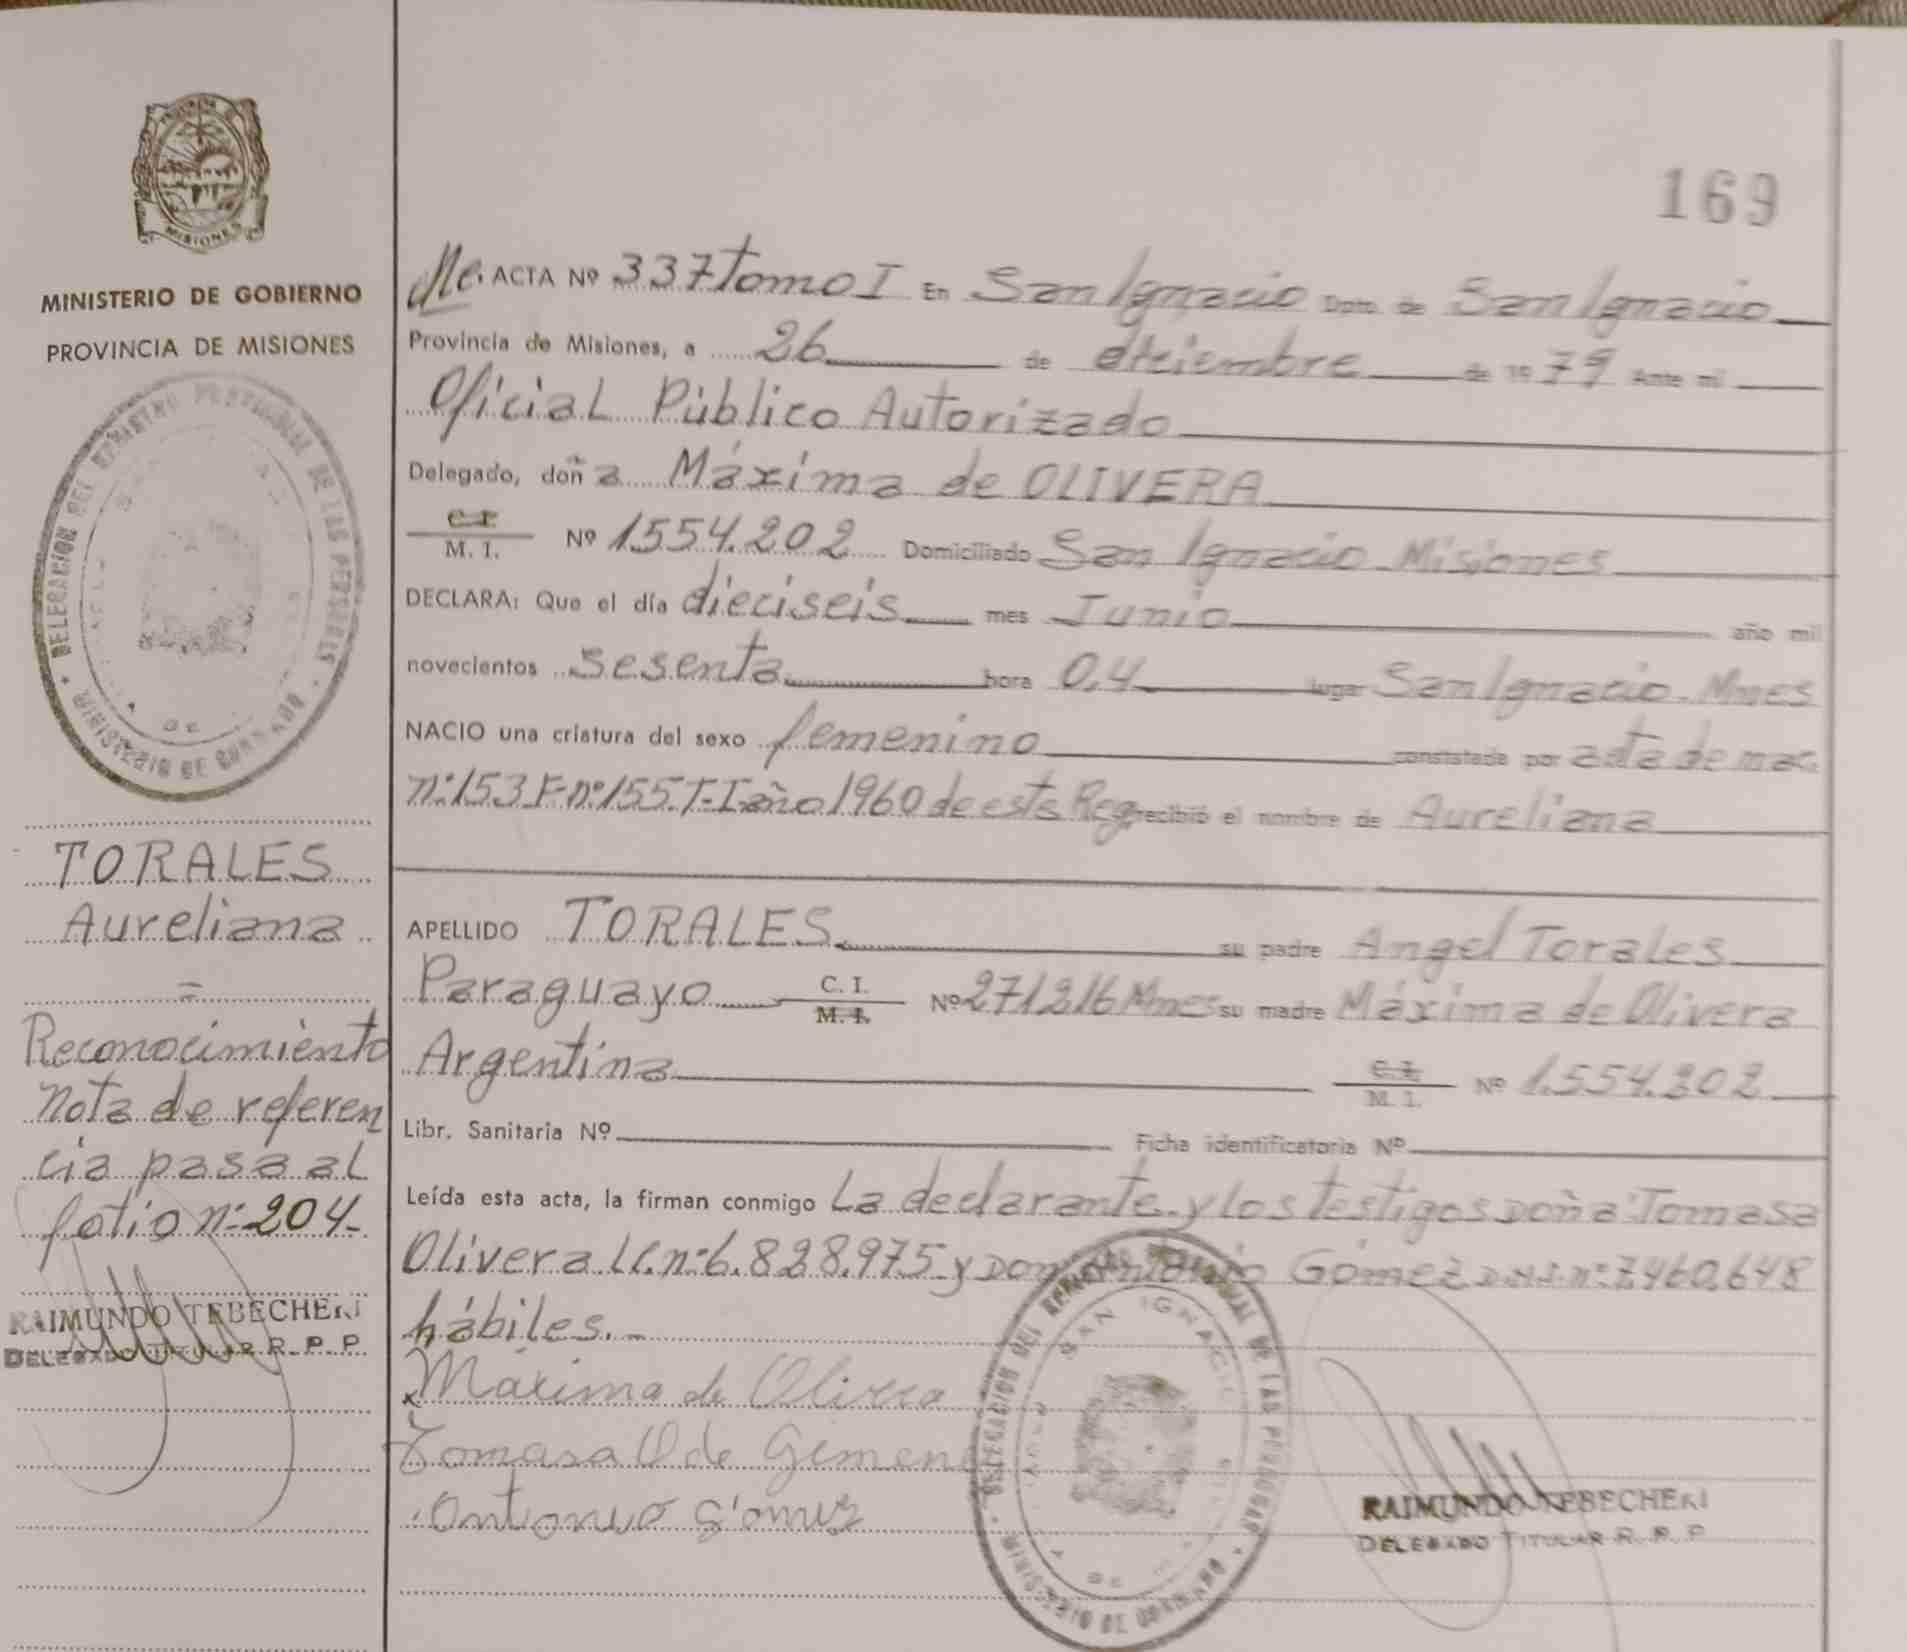 MISIONES
MINISTERIO DE GOBIERNO
PROVINCIA DE MISIONES
DELEGACION DEL REGISTRO PROVINCIAL DE LAS PERSONAS
TORALES
Aureliana
=
Reconocimiento
Nota de referen
cia pasa al
folio nº 204.
RAIMUNDO TEBECHERI
DELEGADO TITULAR R. P. P.
169
ACTA Nº 337 Tomo I En San Ignacio Dpto. de San Ignacio
Provincia de Misiones, a 26 de diciembre de 1979 Ante mi
Oficial Público Autorizado
Delegado, doña Máxima de OLIVERA
C. I.
M. I. Nº 1.554.202 Domiciliado San Ignacio Misiones
DECLARA: Que el día dieciseis mes Junio año mil
novecientos sesenta hora 0,4 lugar San Ignacio. Mnes
NACIO una criatura del sexo femenino constatada por acta de nac.
nº 153 Fº nº 155 T-I año 1960 de este Reg recibió el nombre de Aureliana
APELLIDO TORALES su padre Angel Torales
Paraguayo C. I. M. I. Nº 271216 Mnes su madre Máxima de Olivera
Argentina C. I. M. I. Nº 1.554.202
Libr. Sanitaria Nº Ficha identificatoria Nº
Leída esta acta, la firman conmigo La declarante y los testigos Doña Tomasa
Olivera LC. nº 6.828.975 y Don Antonio Gómez D.N.I. nº 7.460.648
hábiles.-
Máxima de Olivera
Tomasa O de Gimen
Antonio Gomez
DELEGACION DEL REGISTRO PROVINCIAL DE LAS PERSONAS
SAN IGNACIO
RAIMUNDO TEBECHERI
DELEGADO TITULAR R. P. P.